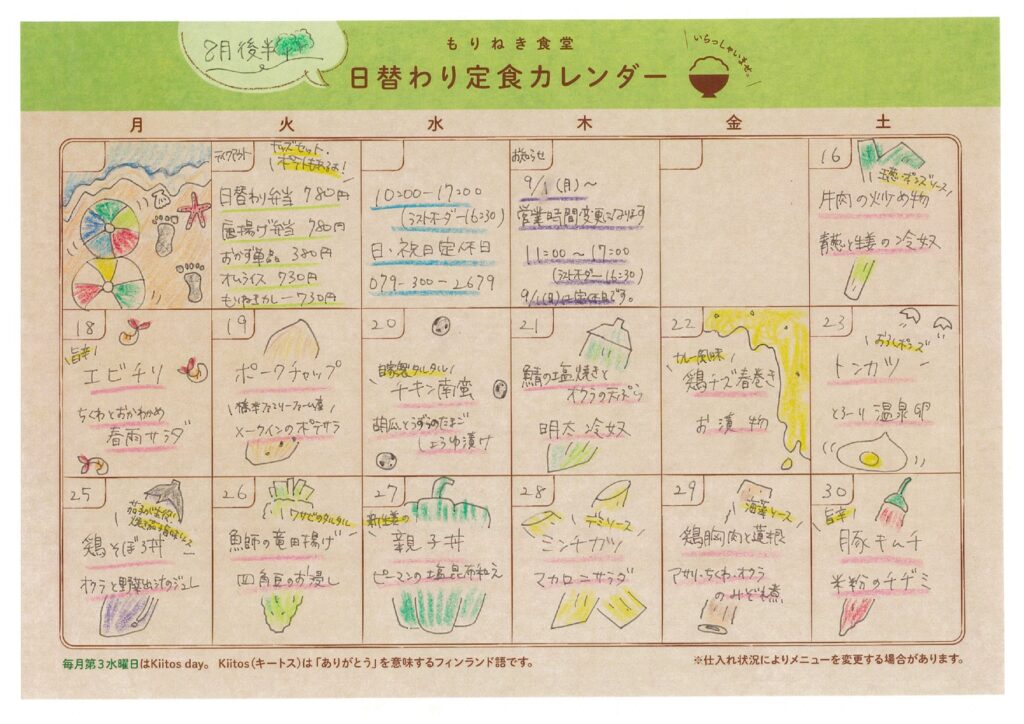 8月後半
もりねき食堂
日替わり定食カレンダー
いらっしゃいませ。
月 火 水 木 金 土
テイクアウト
キッズセット、
ポテトもあるよ!
日替わり弁当 780円
唐揚げ弁当 780円
おかず単品 380円
オムライス 730円
もりねきカレー 730円
10:00-17:00
(ラストオーダー16:30)
日・祝日定休日
079-300-2679
お知らせ
9/1(月)~
営業時間変更になります
11:00~17:00
(ラストオーダー16:30)
9/1(月)は定休日です。
16
玉葱・ポンズソース
牛肉の炒め物
青葱と生姜の冷奴
18
旨辛!
エビチリ
ちくわとおかわかめ
春雨サラダ
19
ポークチャップ
橋本ファミリーファーム産
メークインのポテサラ
20
自家製タルタル!
チキン南蛮
胡瓜とうずらのたまご
しょうゆ漬け
21
鯖の塩焼きと
オクラの天ぷら
明太冷奴
22
カレー風味
鶏チーズ春巻き
お漬物
23
おろしポンズ
トンカツ
とろーり温泉卵
25
鶏そぼろ丼
オクラと野菜出汁のジュレ
26
ワサビのタルタル
魚師の竜田揚げ
四角豆のお浸し
27
新生姜の
親子丼
ピーマンの塩昆布和え
28
デミソース
ミンチカツ
マカロニサラダ
29
海藻ソース
鶏胸肉と蓮根
アサリ・ちくわ・オクラ
のみぞれ煮
30
旨辛!
豚キムチ
米粉のチヂミ
毎月第3水曜日はKiitos day。 Kiitos(キートス)は「ありがとう」を意味するフィンランド語です。
※仕入れ状況によりメニューを変更する場合があります。